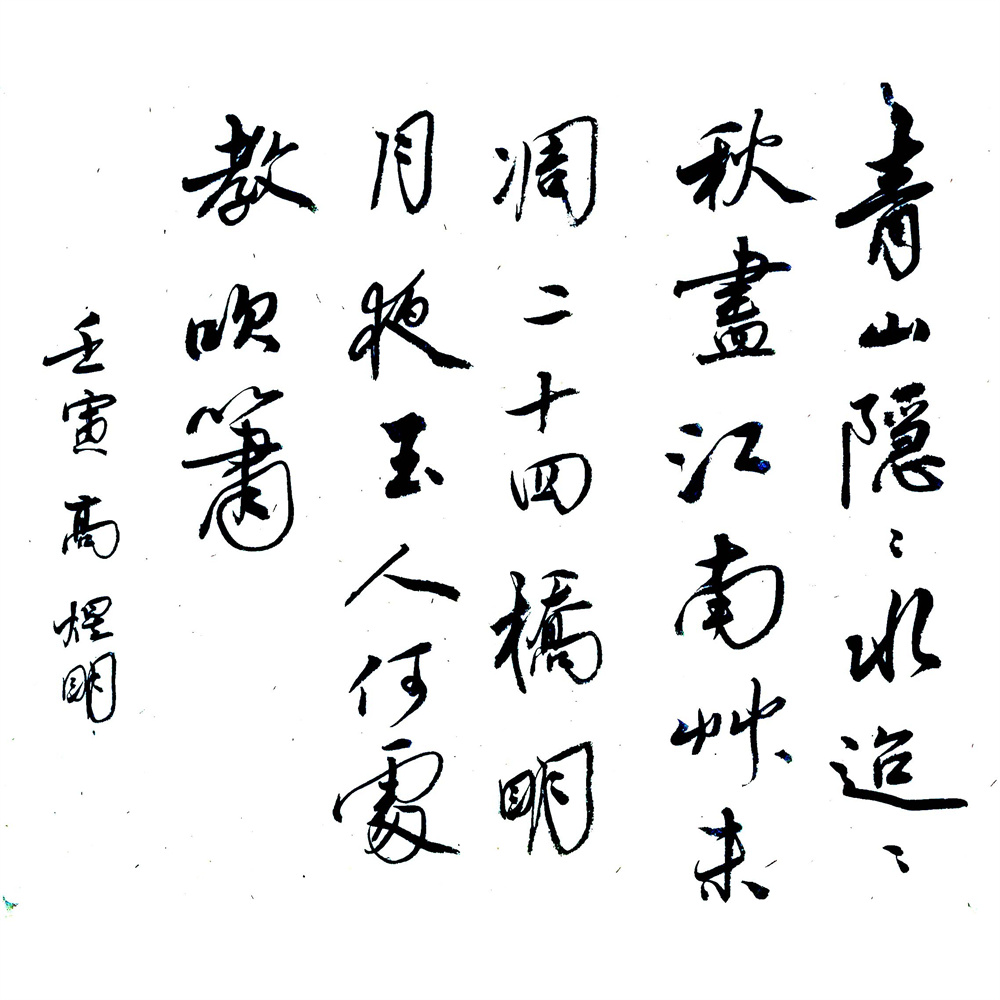 青山隱〻水迢〻
秋盡江南艸未
凋二十四橋明
月夜玉人何處
教吹簫
壬寅 高煜明